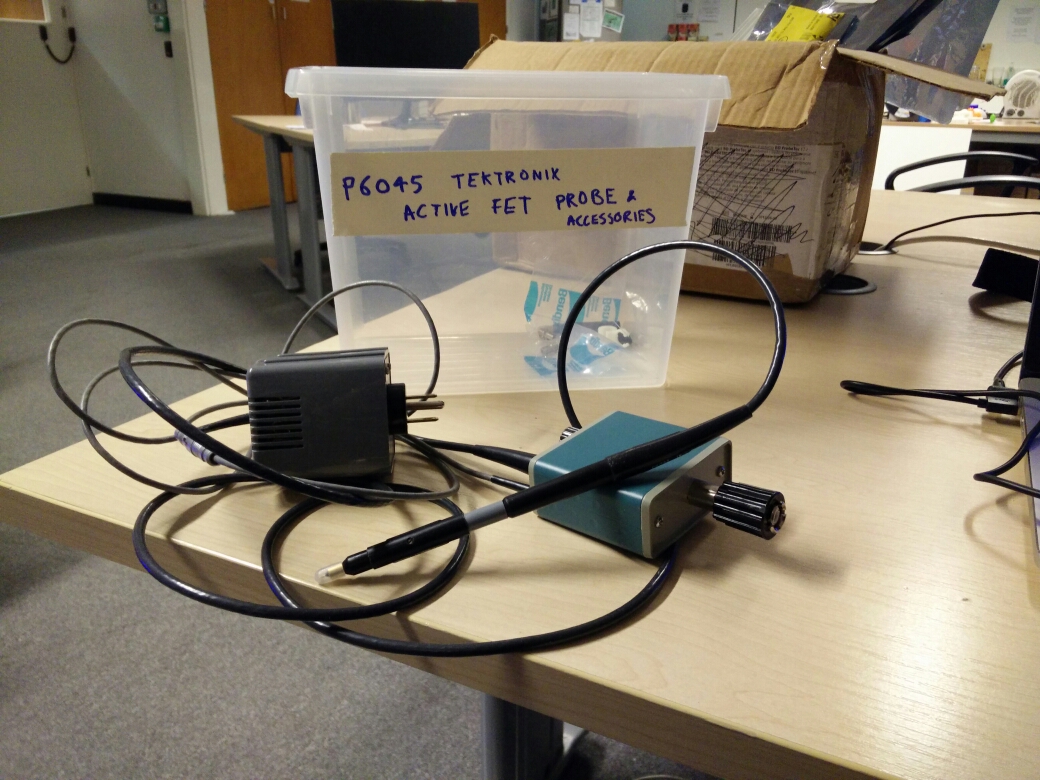 P6045 TEKTRONIK
ACTIVE FET PROBE &
ACCESSORIES